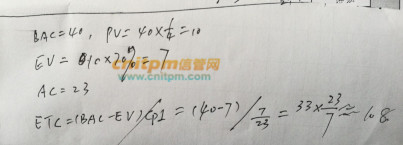 BAC=40, PV=40×1/4=10
EV=10×70%=7
AC=23
ETC=(BAC-EV)/CPI=(40-7)/7/23=33×23/7≈108
cnitpm信管网
www.cnitpm.com